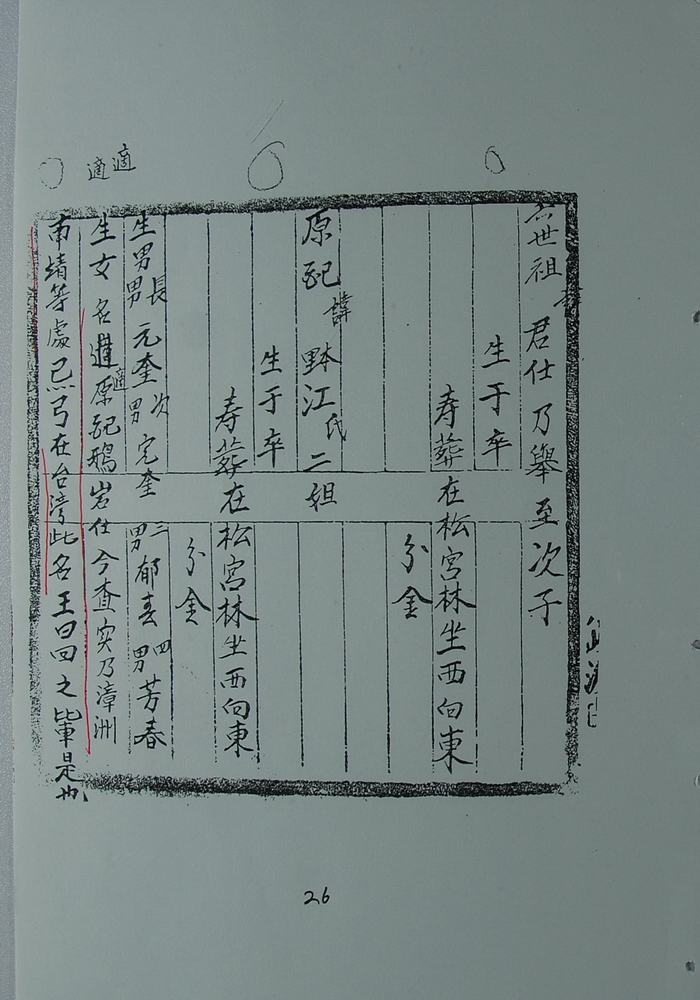 六世祖諱君仕乃舉至次子
生于卒
寿葬在松宮林坐西向東
分金
原配諱野江氏二姐
生于卒
寿葬在松宮林坐西向東
分金
生男長男元奎次男完奎三男郁春四男芳春
生女名適原配鴉岩仕今查实乃漳洲
南靖等處已弓在台湾此名王曰回之輩是也
適適
26